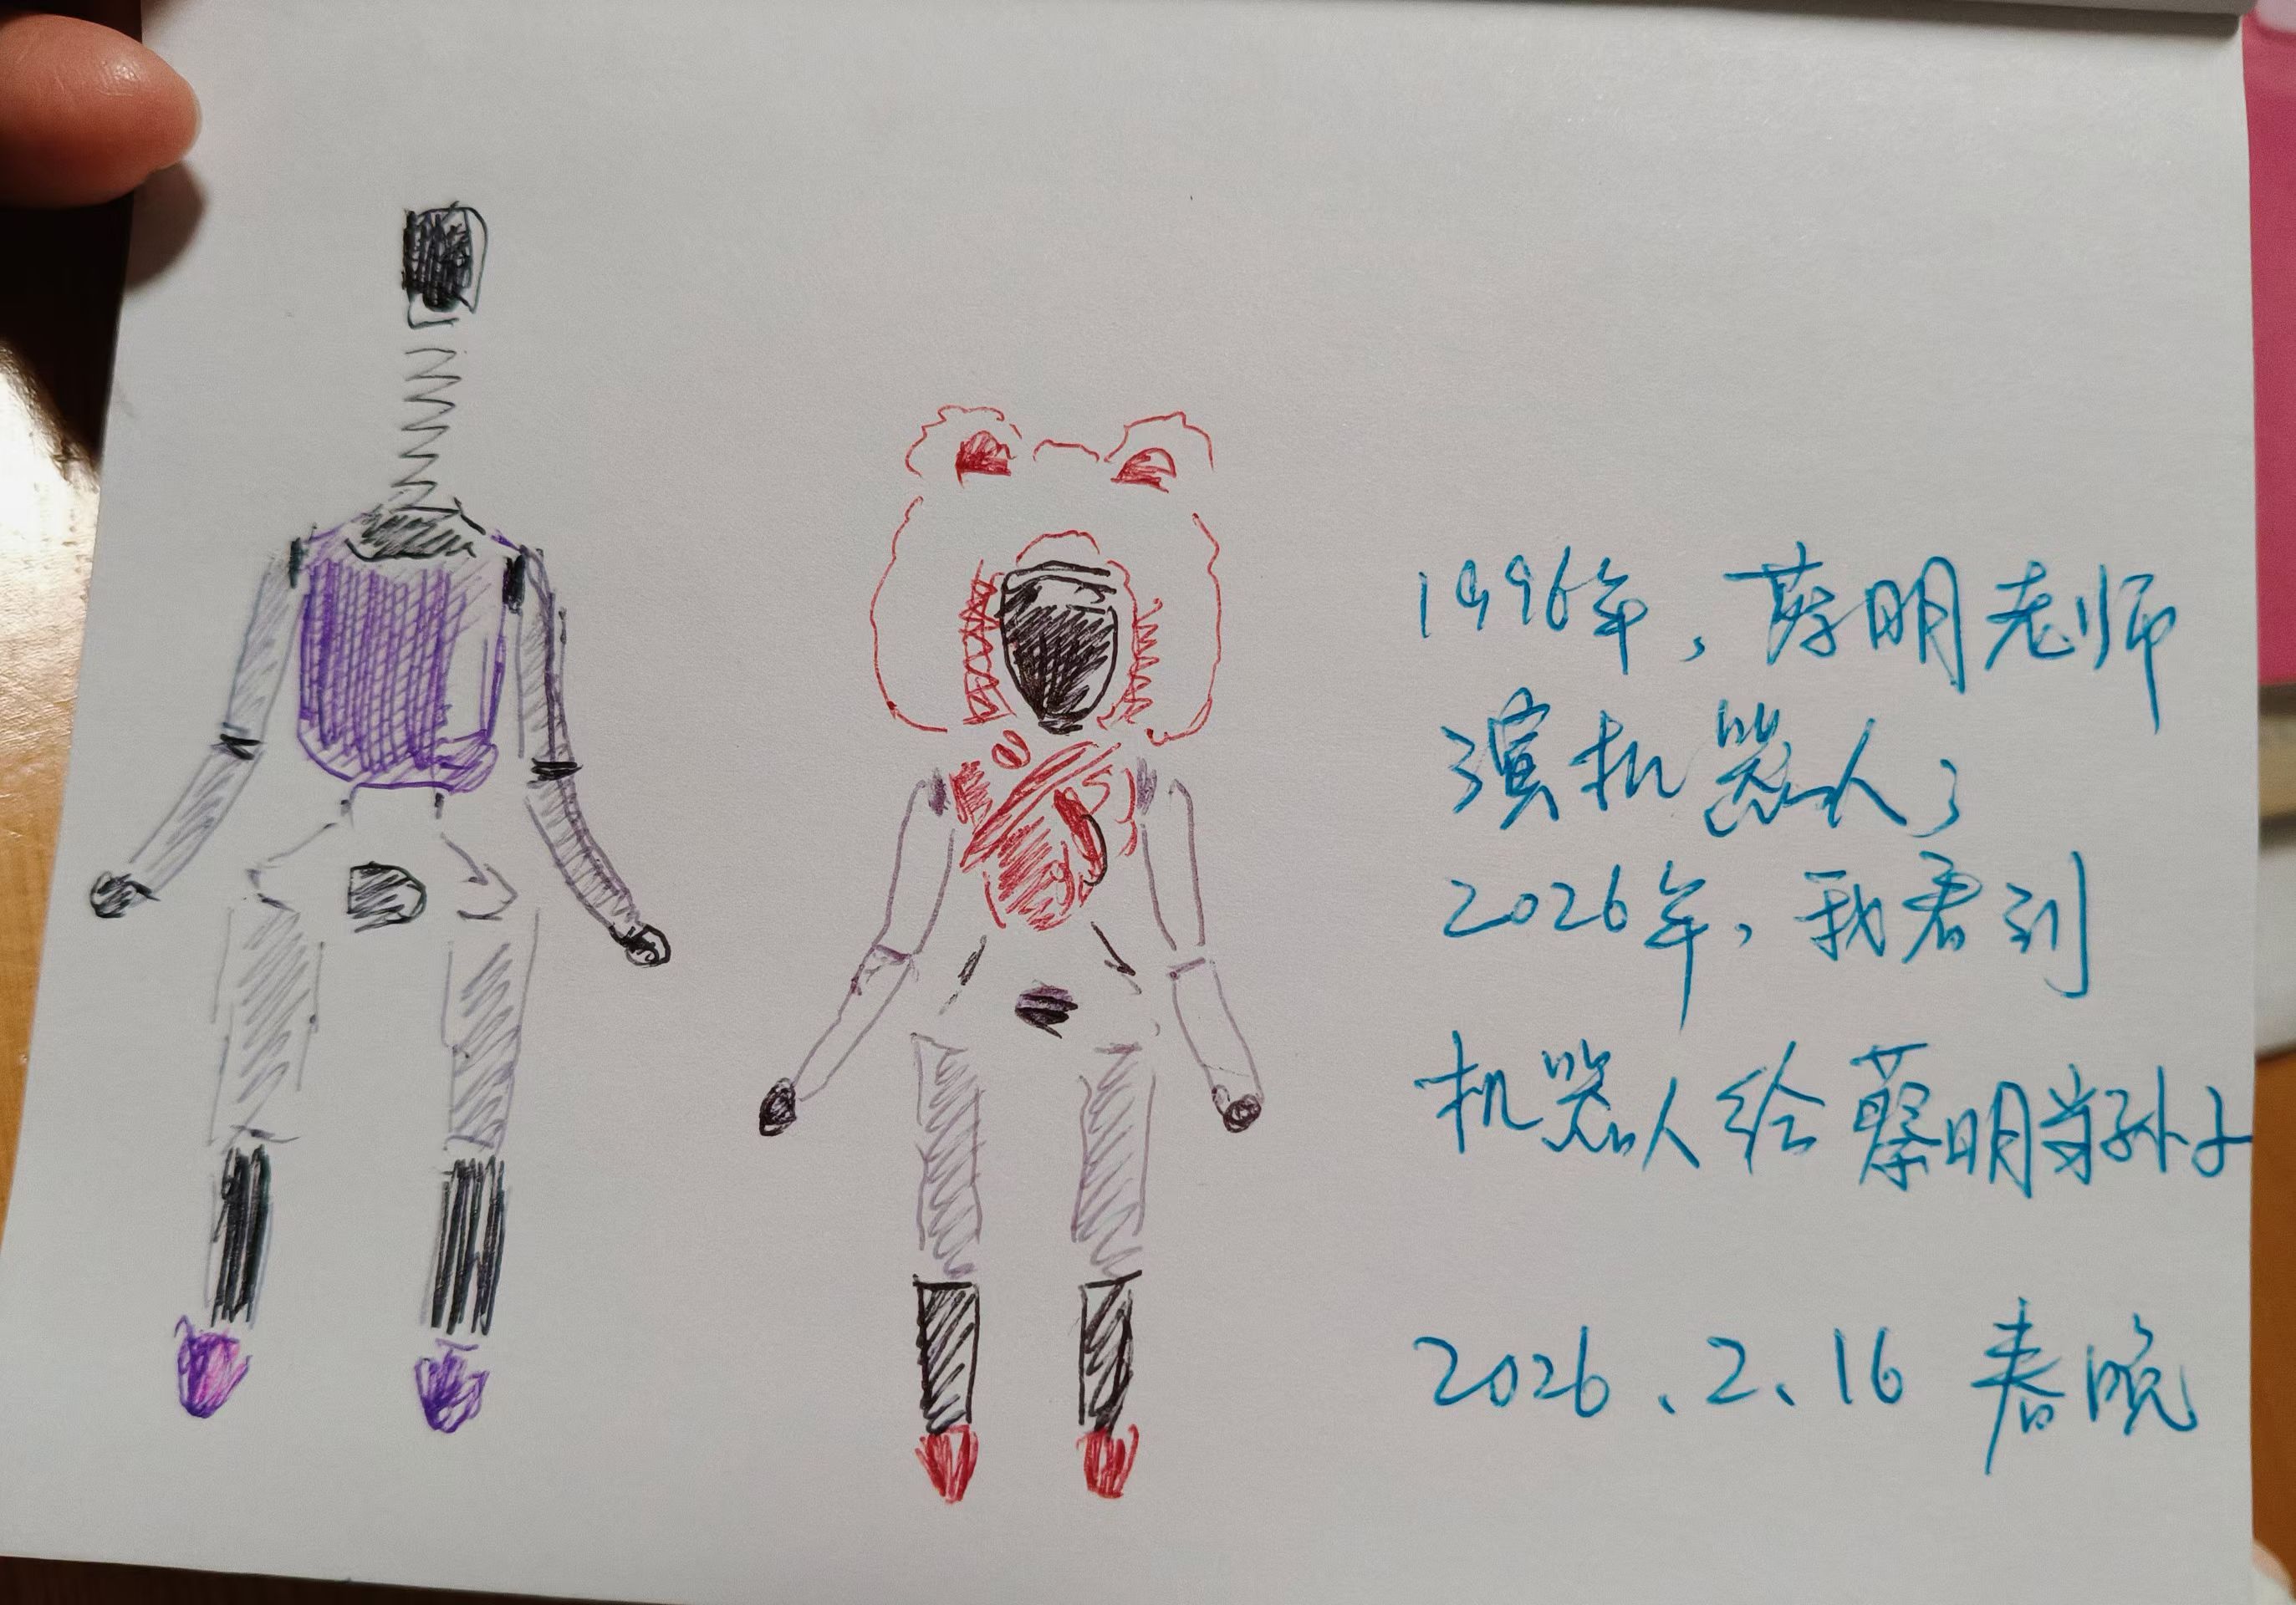 1996年，蔡明老师
演机器人；
2026年，我看到
机器人给蔡明当孙子
2026、2、16 春晚